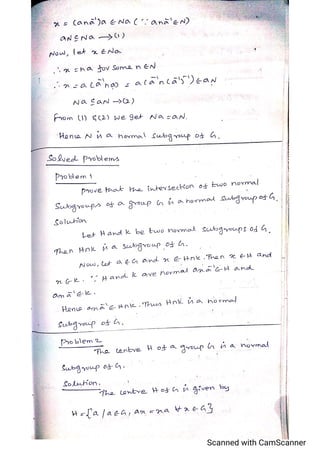 x = (ana⁻¹)a ∈ Na (∵ ana⁻¹ ∈ N)
aN ⊆ Na → (1)
Now, let x ∈ Na
∴ x = na for some n ∈ N
∴ x = a (a⁻¹na) = a (a⁻¹n(a⁻¹)⁻¹) ∈ aN
Na ⊆ aN → (2)
From (1) & (2) we get Na = aN.
Hence N is a normal subgroup of G.
Solved problems
Problem 1
Prove that the intersection of two normal
Subgroups of a group G is a normal subgroup of G.
Solution
Let H and k be two normal subgroups of G.
Then H∩k is a subgroup of G.
Now, let a ∈ G and x ∈ H∩k. Then x ∈ H and
x ∈ k. ∵ H and k are normal axa⁻¹ ∈ H and
axa⁻¹ ∈ k.
Hence axa⁻¹ ∈ H∩k. Thus H∩k is a normal
Subgroup of G.
Problem 2
The centre H of a group G is a normal
Subgroup of G.
Solution.
The centre H of G is given by
H = {a / a ∈ G, ax = xa ∀ x ∈ G}
Scanned with CamScanner